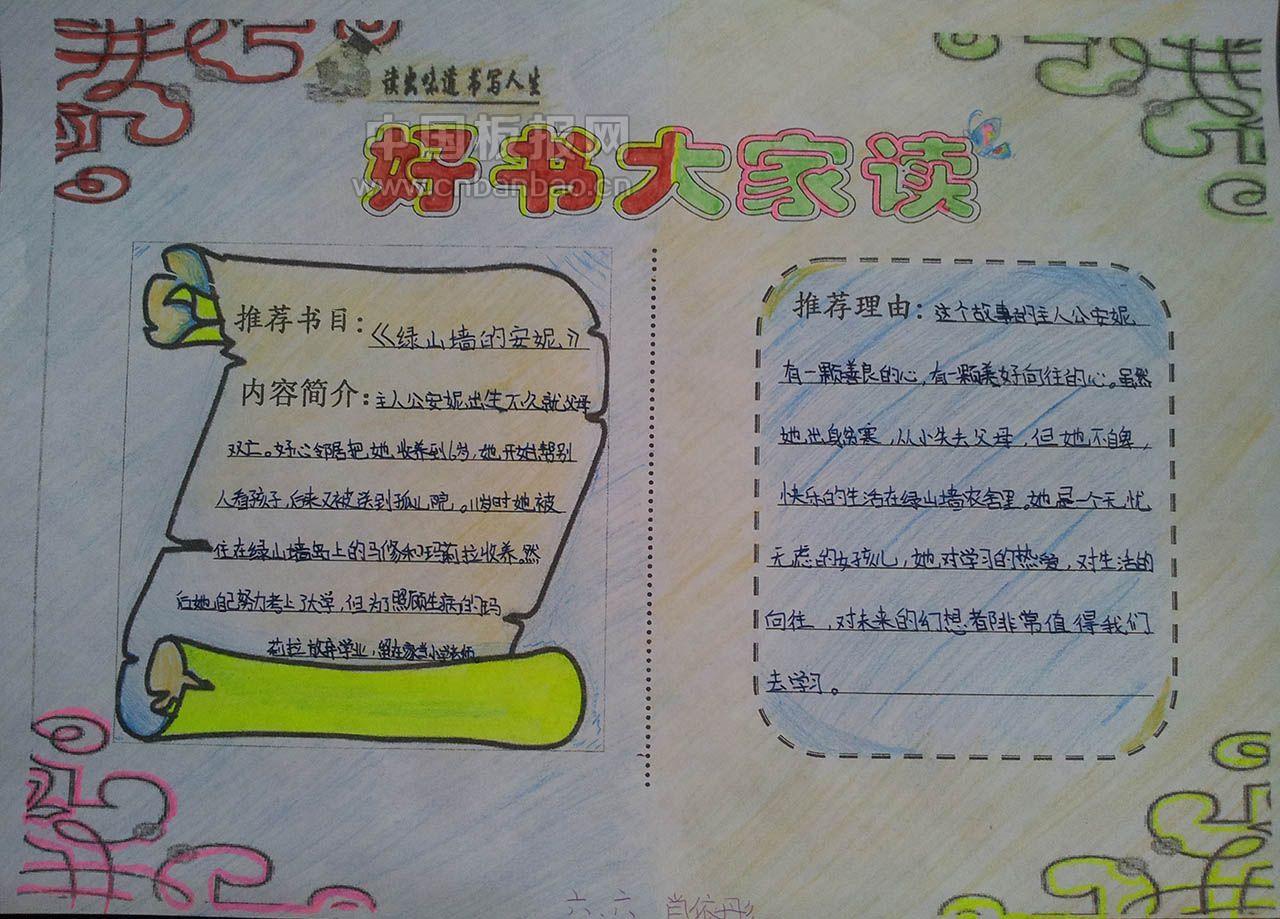 读出味道 书写人生
中国板报网
好书大家读
www.cnbanbao.cn
推荐书目：《绿山墙的安妮》
内容简介：主人公安妮出生不久就父母
双亡。好心邻居把她收养到6岁，她开始帮别
人看孩子，后来又被送到孤儿院，。11岁时她被
住在绿山墙岛上的马修和玛莉拉收养。然
后她自己努力考上了大学，但为了照顾生病的玛
莉拉放弃学业，留在家当小学老师。
推荐理由：这个故事的主人公安妮
有一颗善良的心，有一颗美好向往的心。虽然
她出身贫寒，从小失去父母，但她不自卑，
快乐的生活在绿山墙农舍里。她是一个无忧
无虑的女孩儿，她对学习的热爱，对生活的
向往，对未来的幻想都非常值得我们
去学习。
六、六 肖依彤